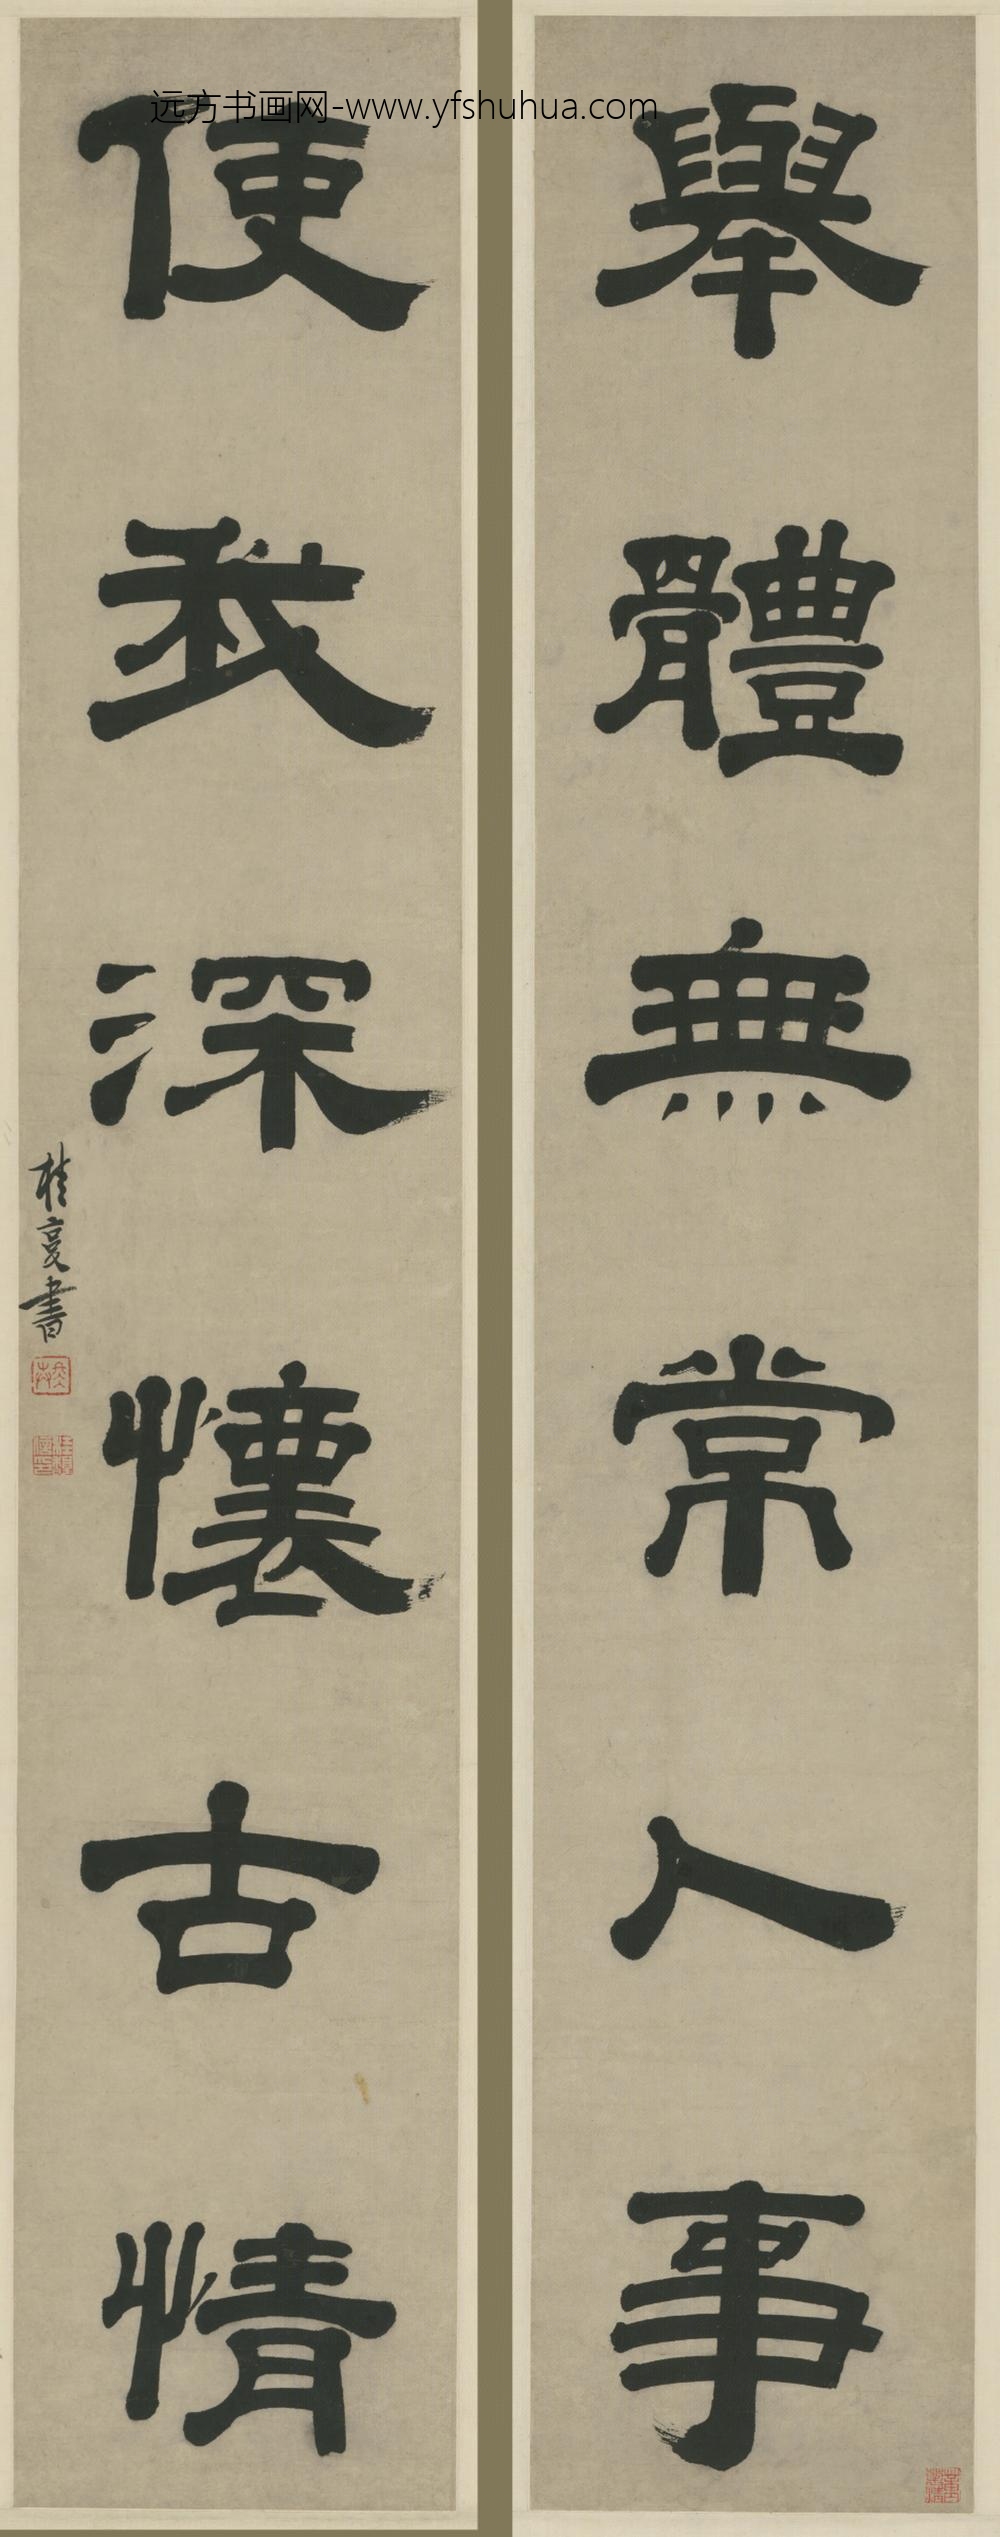 远方书画网-www.yfshuhua.com
舉體無常人事
便我深懷古情
桂馥書